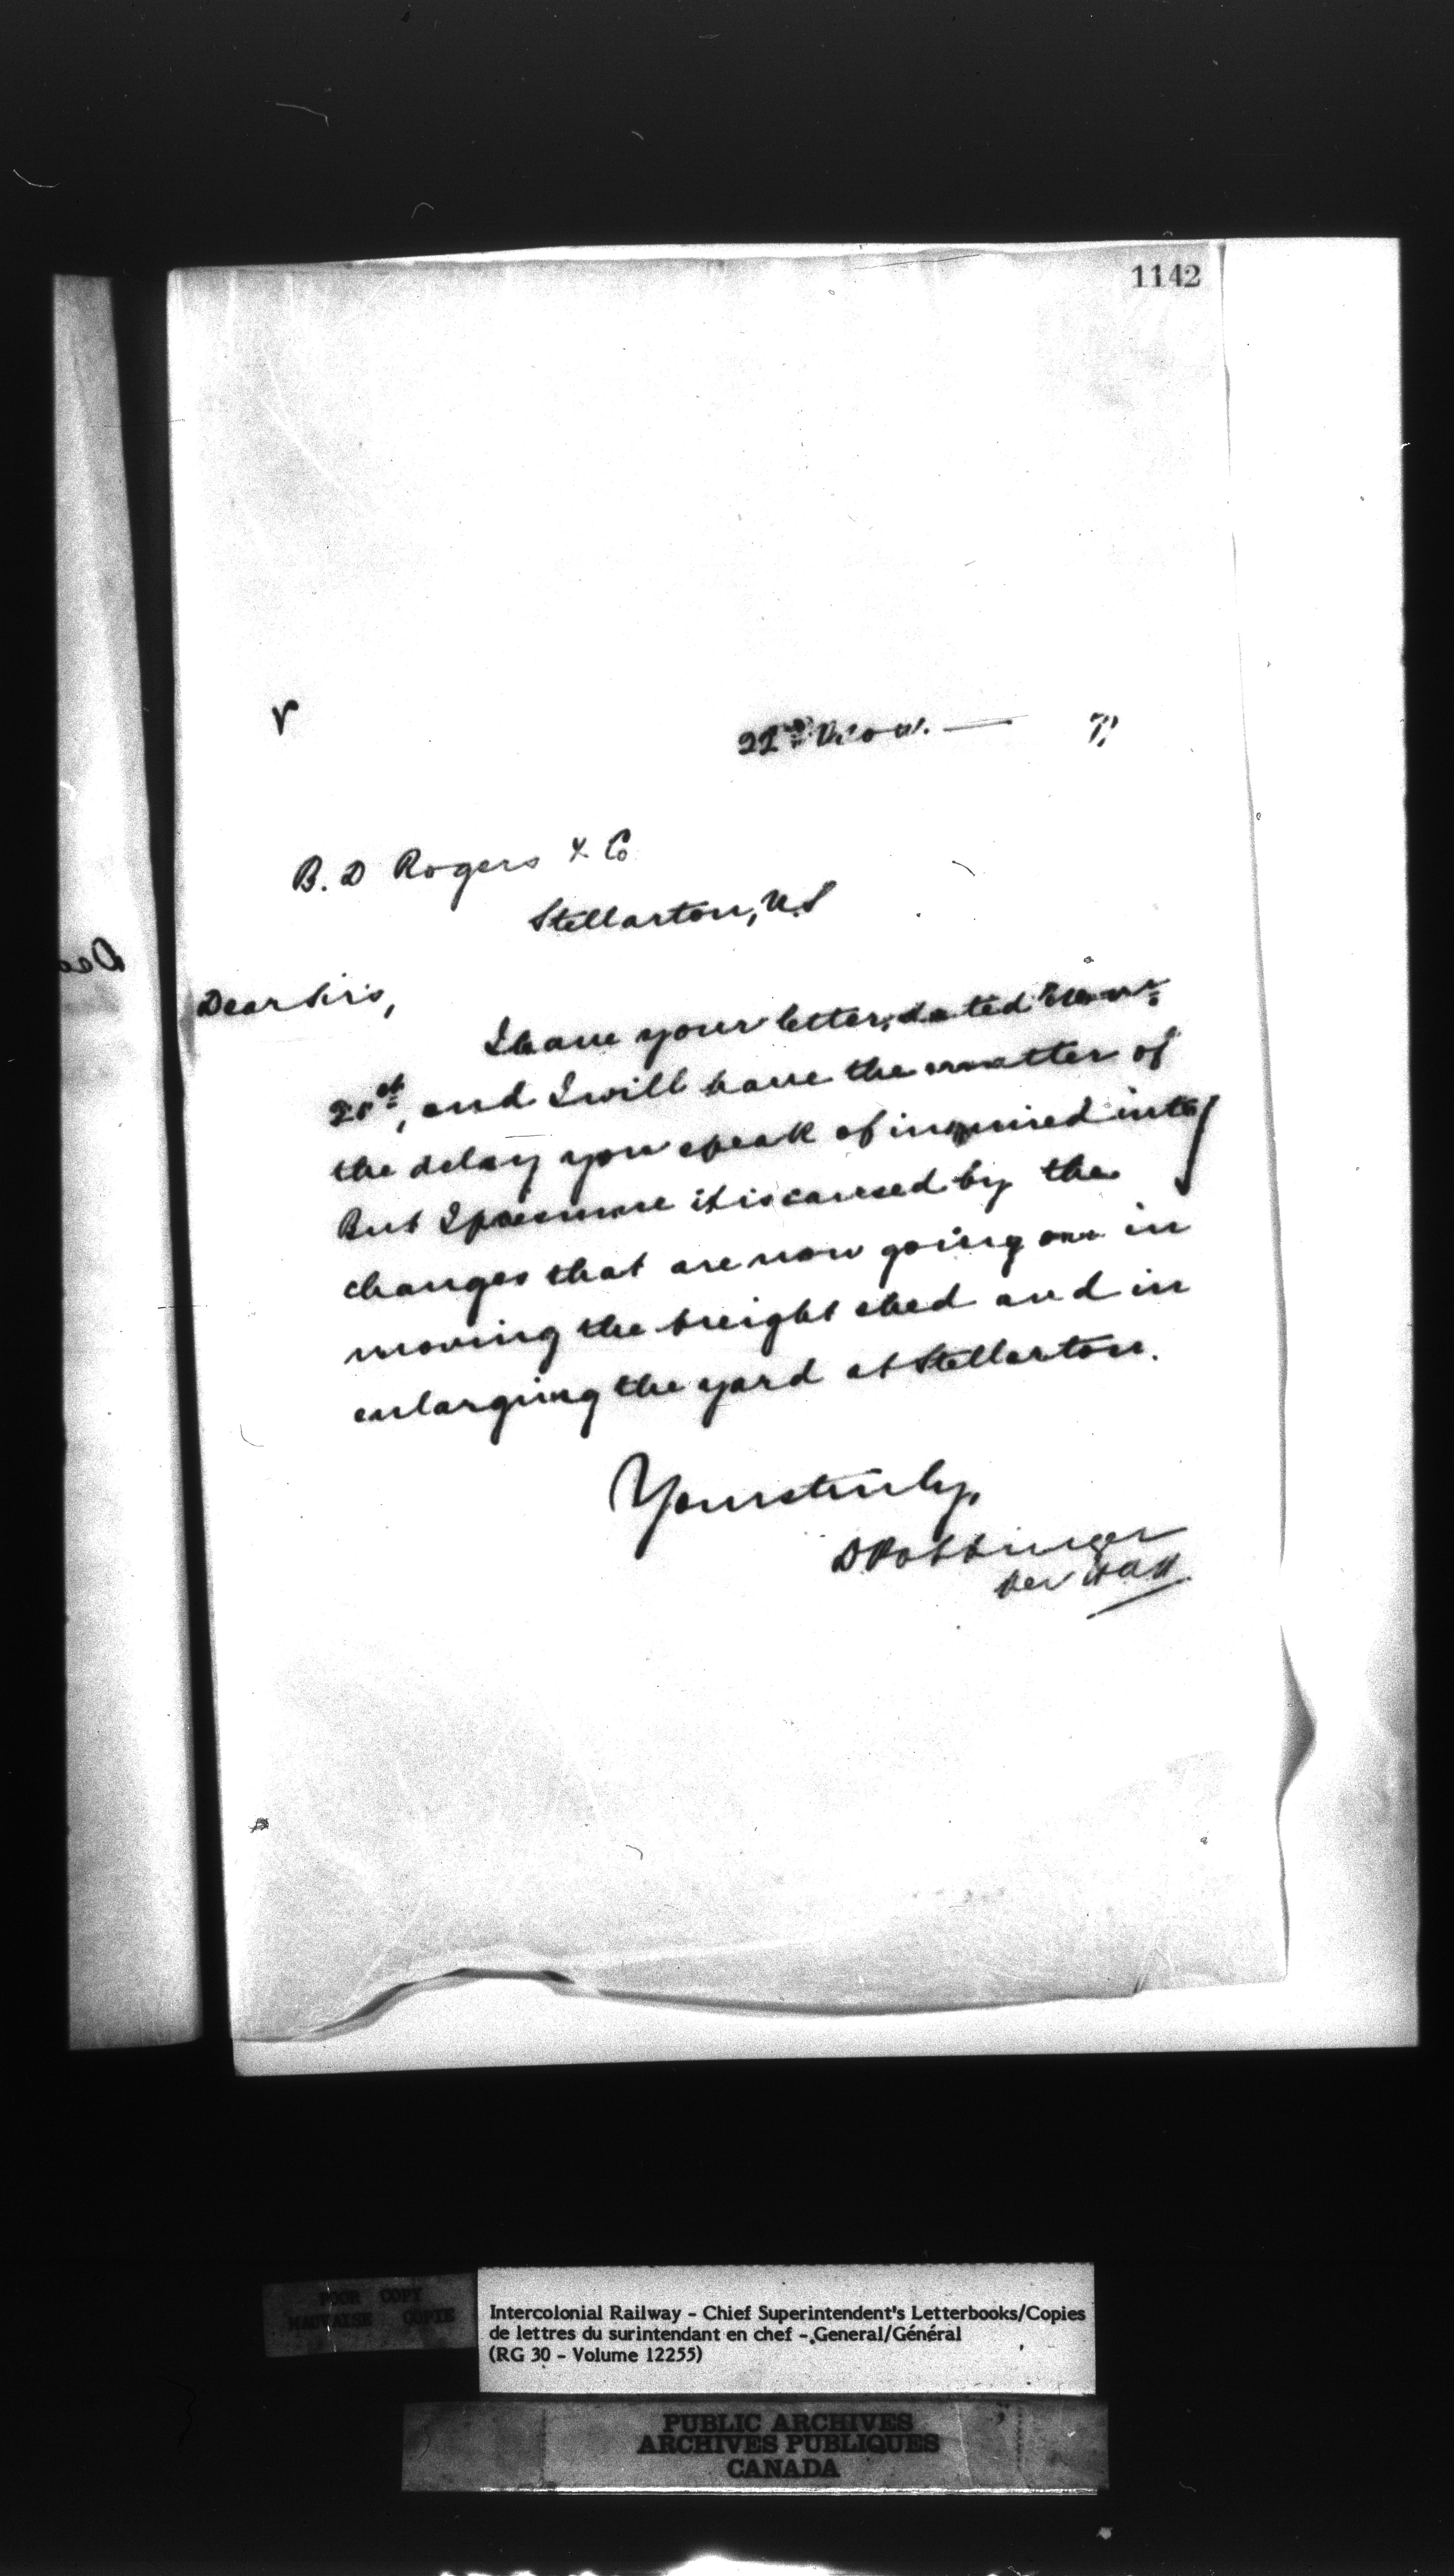 1142
22nd Nov. — 7,
B. D Rogers & Co
Stellarton, N.S
Dear Sirs,
I have your letter, dated Novr
21st, and I will have the matter of
the delay you speak of inquired into,
But I presume it is caused by the
changes that are now going on in
moving the freight shed and in
enlarging the yard at Stellarton.
Yours truly,
D Pottinger
per
POOR COPY
MAUVAISE COPIE
Intercolonial Railway - Chief Superintendent's Letterbooks/Copies
de lettres du surintendant en chef - General/Général
(RG 30 - Volume 12255)
PUBLIC ARCHIVES
ARCHIVES PUBLIQUES
CANADA